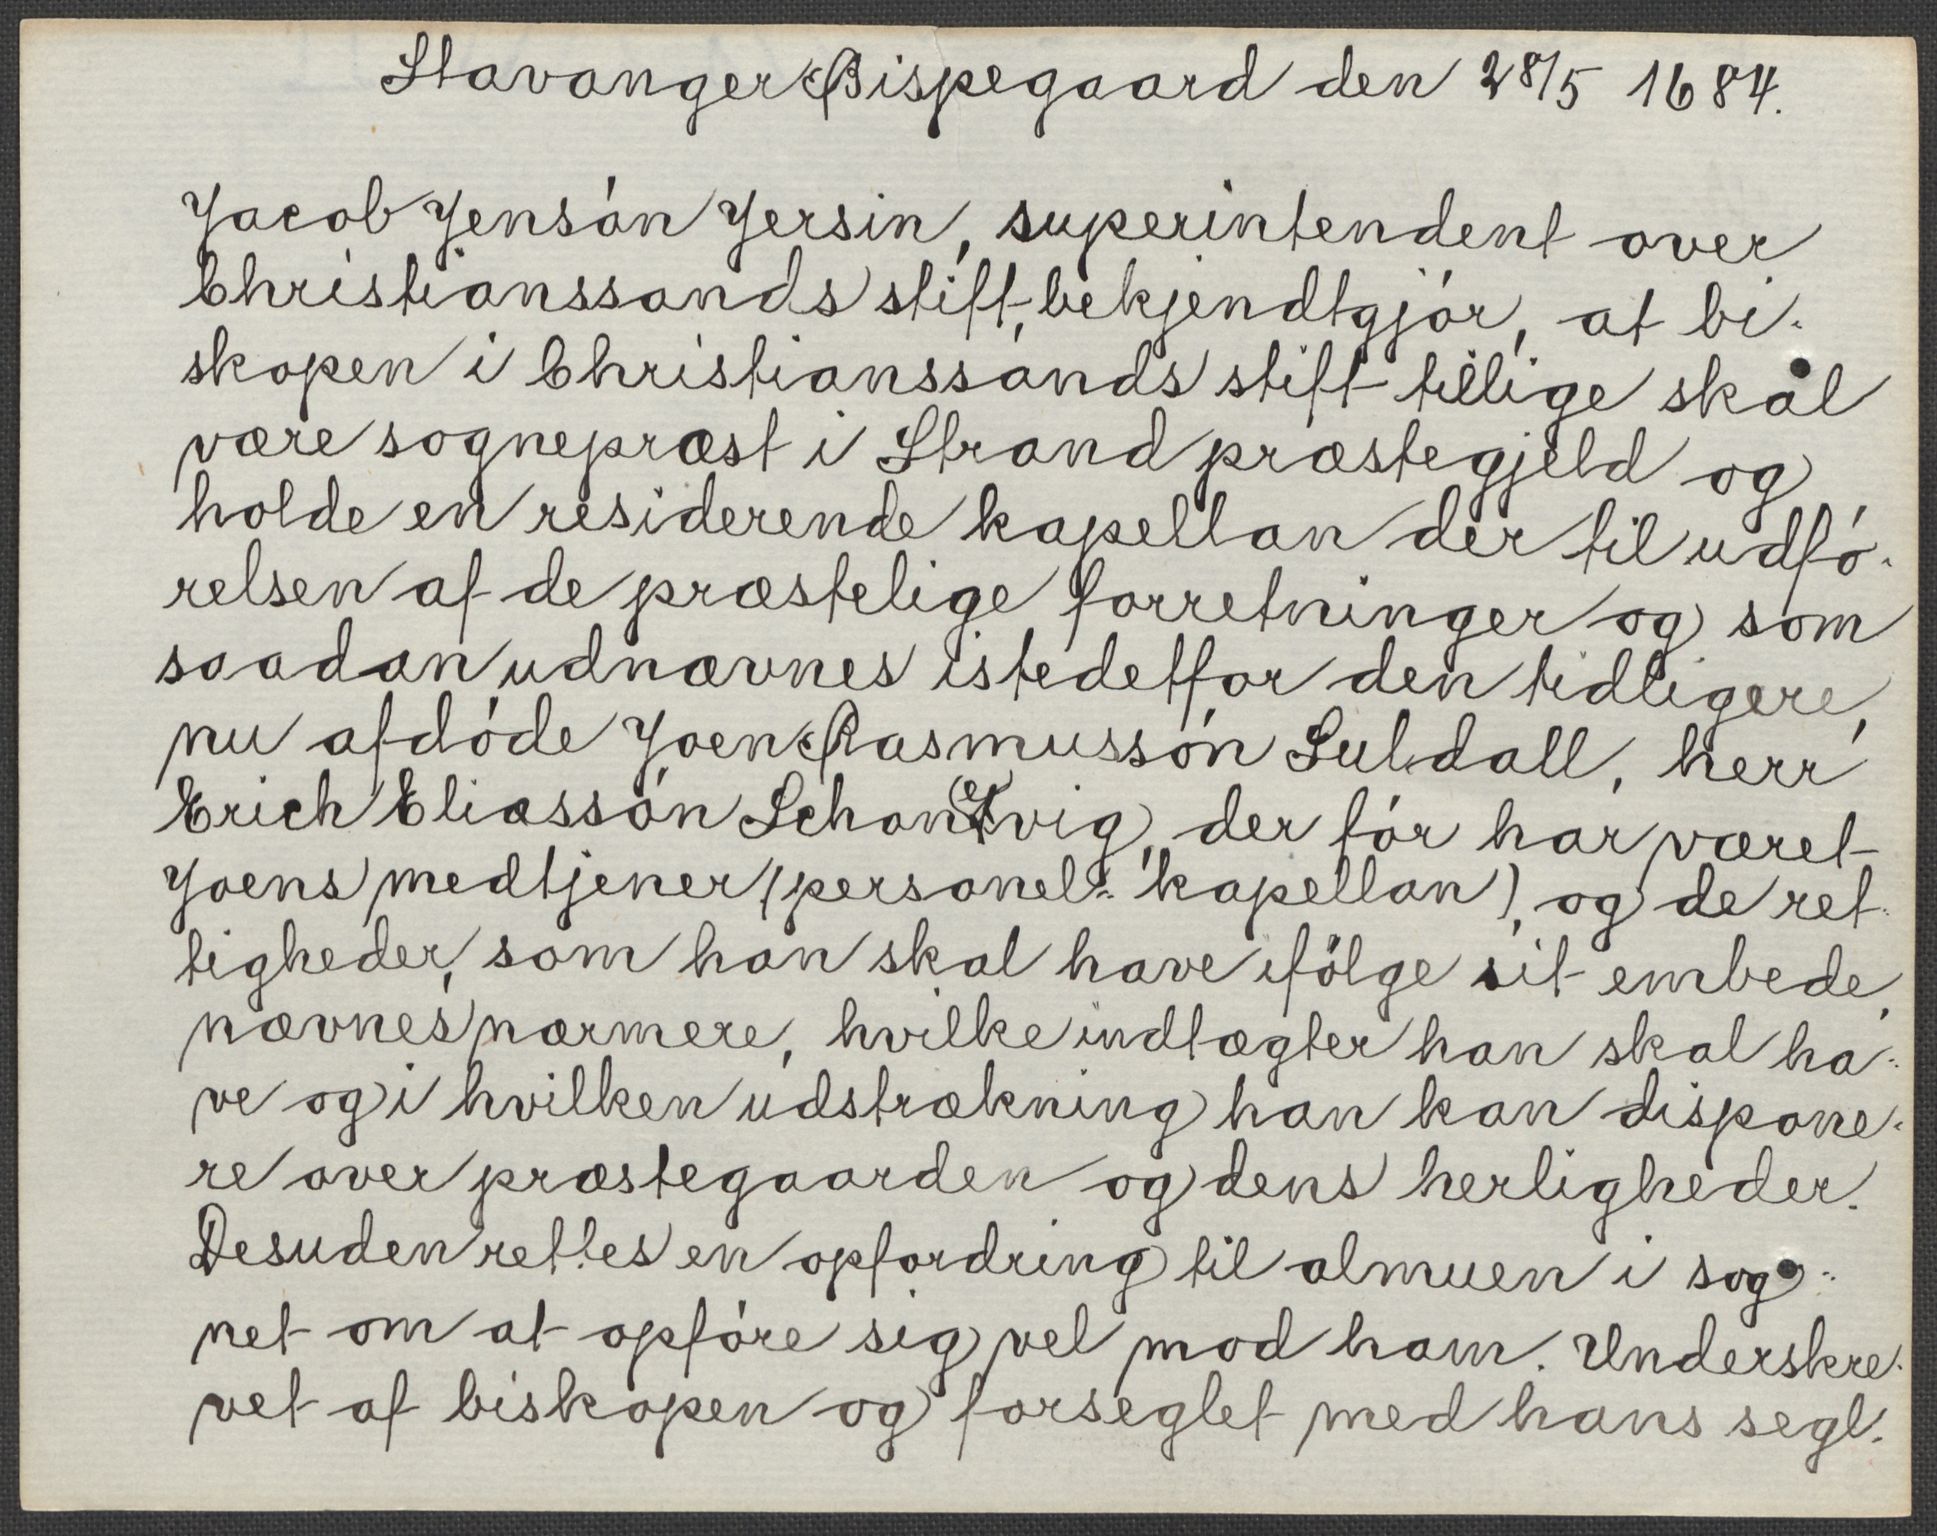 Stavanger Bispegaard den 28/5 1684.
Jacob Jensón Jersin, superintendent over
Christianssands stift, bekjendtgjór, at bi-
skopen i Christianssands stift tillige skal
være sognepræst i Strand præstegjeld og
holde en residerende kapellan der til udfó-
relsen af de præstelige forretninger og som
saadan udnævnes istedetfor den tidligere,
nu afdóde Joen Rasmussón Suldall, herr
Erich Eliassón Schan(c)kvig, der fór har været
Joens medtjener (personel-kapellan), og de ret-
tigheder, som han skal have ifólge sit embede,
nævnes nærmere, hvilke indtægter han skal ha-
ve og i hvilken udstrækning han kan dispone-
re over præstegaarden og dens herligheder.
Desuden rettes en opfordring til almuen i sog-
net om at opfóre sig vel mod ham. Underskre-
vet af biskopen og forseglet med hans segl.